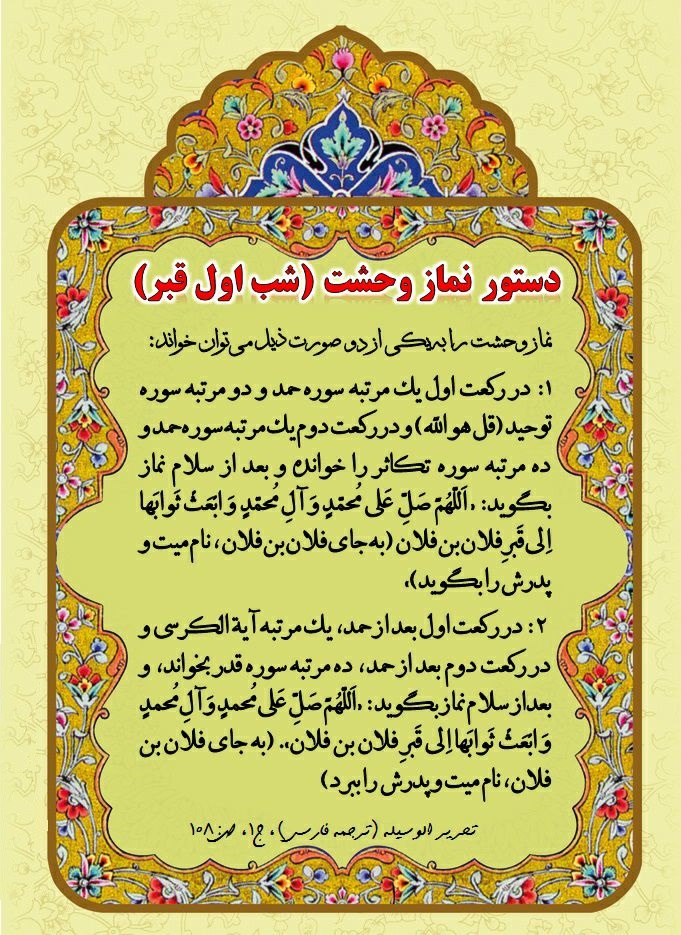 دستور نماز وحشت (شب اول قبر)
نماز وحشت را به یکی از دو صورت ذیل می‌توان خواند:
۱: در رکعت اول یك مرتبه سوره حمد و دو مرتبه سوره
توحید (قل هو الله) و در رکعت دوم یك مرتبه سوره حمد و
ده مرتبه سوره تکاثر را خوانده و بعد از سلام نماز
بگوید: «اَللّهُمَّ صَلِّ عَلی مُحمّدٍ وَ آلِ مُحمّدٍ وَ ابْعَثْ ثَوابَها
اِلی قَبرِ فلان بن فلان (به جای فلان بن فلان، نام میت و
پدرش را بگوید)»
۲: در رکعت اول بعد از حمد، یك مرتبه آیة الکرسی و
در رکعت دوم بعد از حمد، ده مرتبه سوره قدر بخواند، و
بعد از سلام نماز بگوید: «اَللّهُمّ صَلِّ عَلی مُحمدٍ وَ آلِ مُحمدٍ
وَ ابْعَثْ ثَوابَها اِلی قَبرِ فلان بن فلان». (به جای فلان بن
فلان، نام میت و پدرش را ببرد)
تحریر الوسیله (ترجمه فارسی)، ج۱، ص۱۰۸